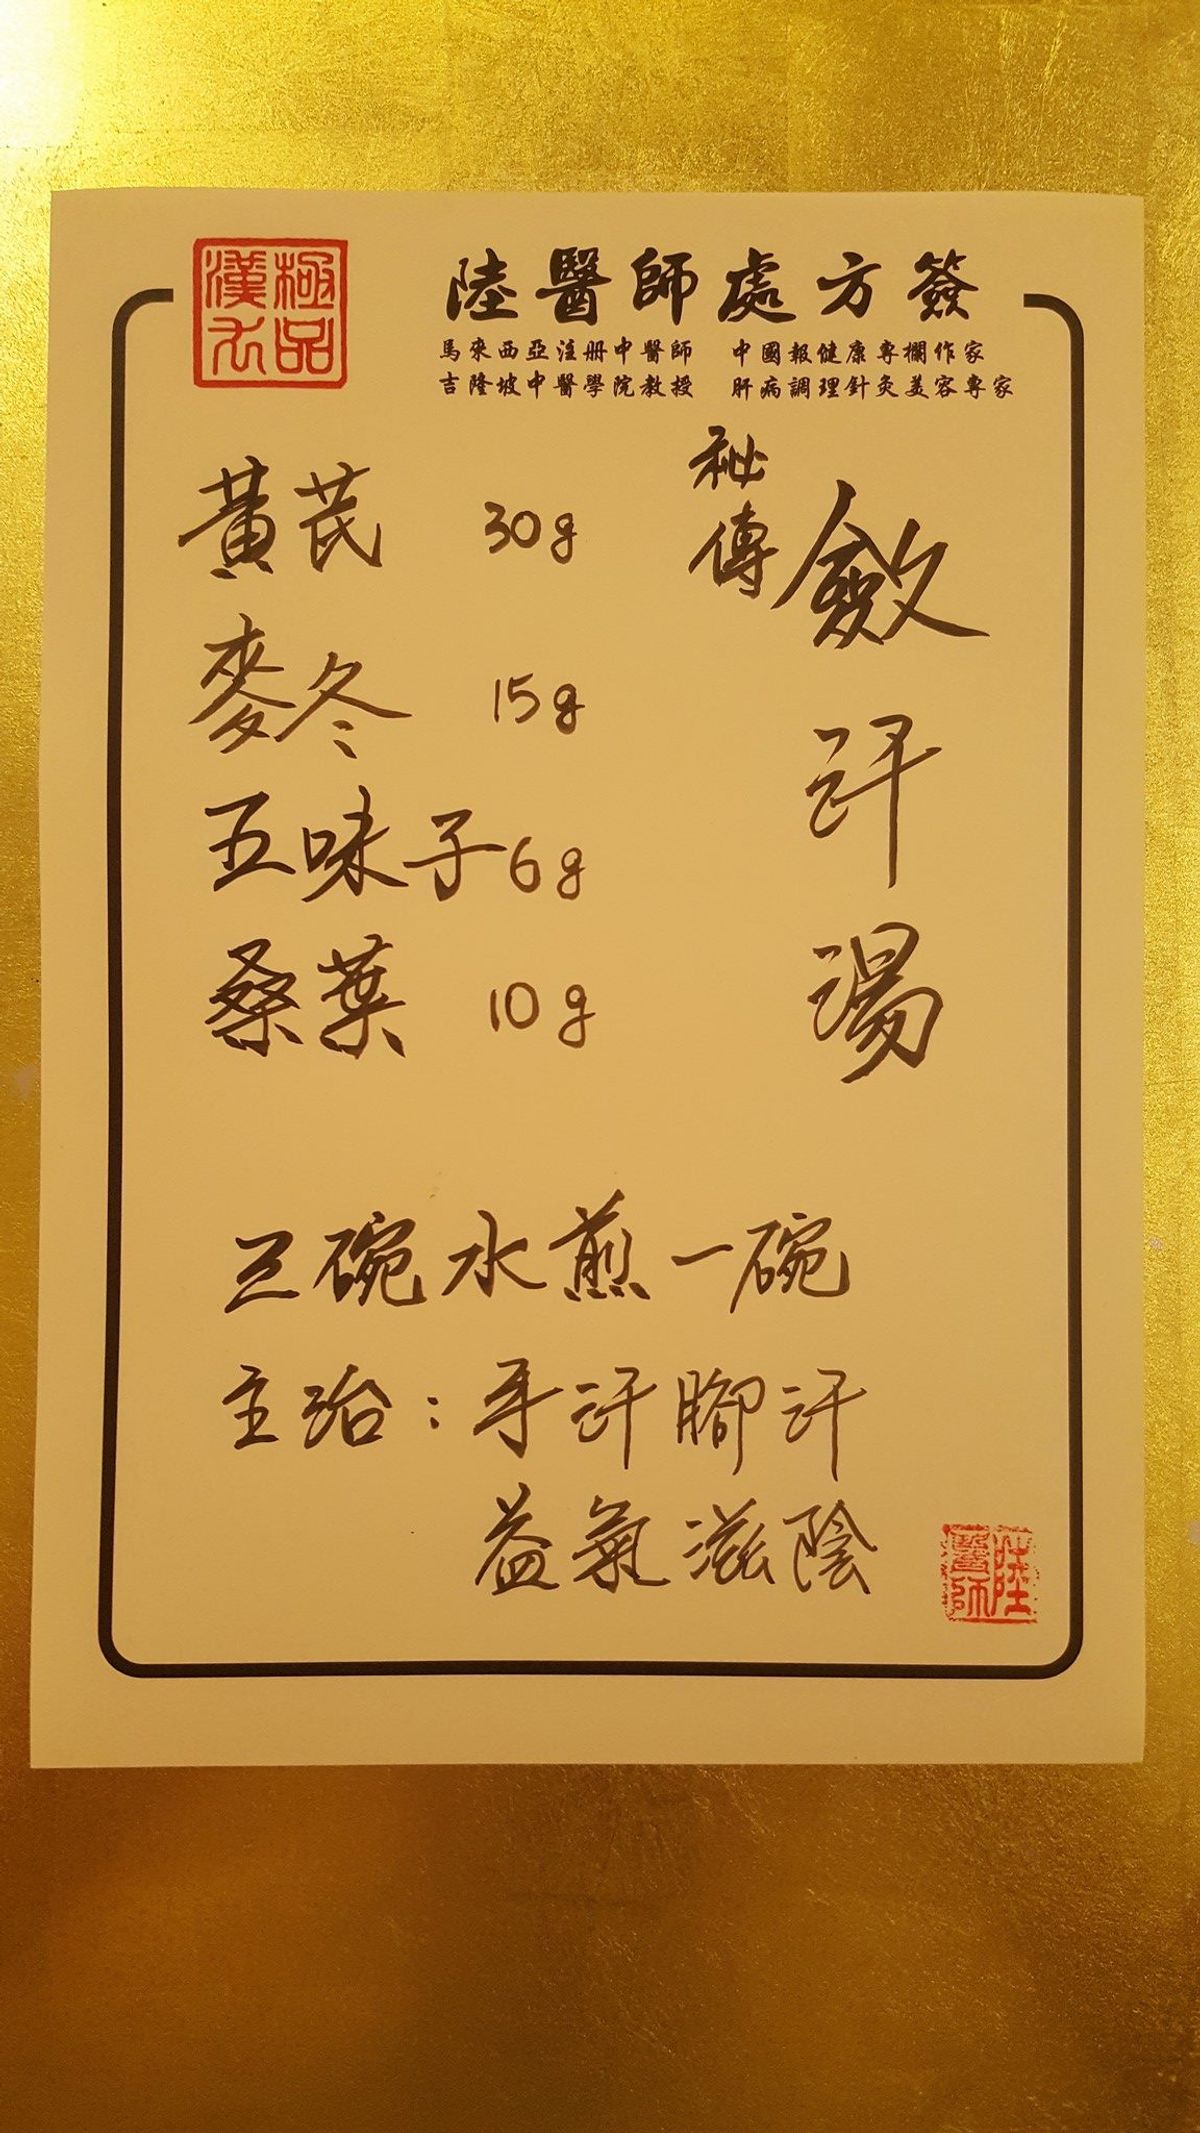 極品
漢方
陸醫師處方簽
馬來西亞注册中醫師 中國報健康專欄作家
吉隆坡中醫學院教授 肝病調理針灸美容專家
秘傳
斂汗湯
黃芪 30g
麥冬 15g
五味子 6g
桑葉 10g
三碗水煎一碗
主治：手汗腳汗
益氣滋陰
陸醫師